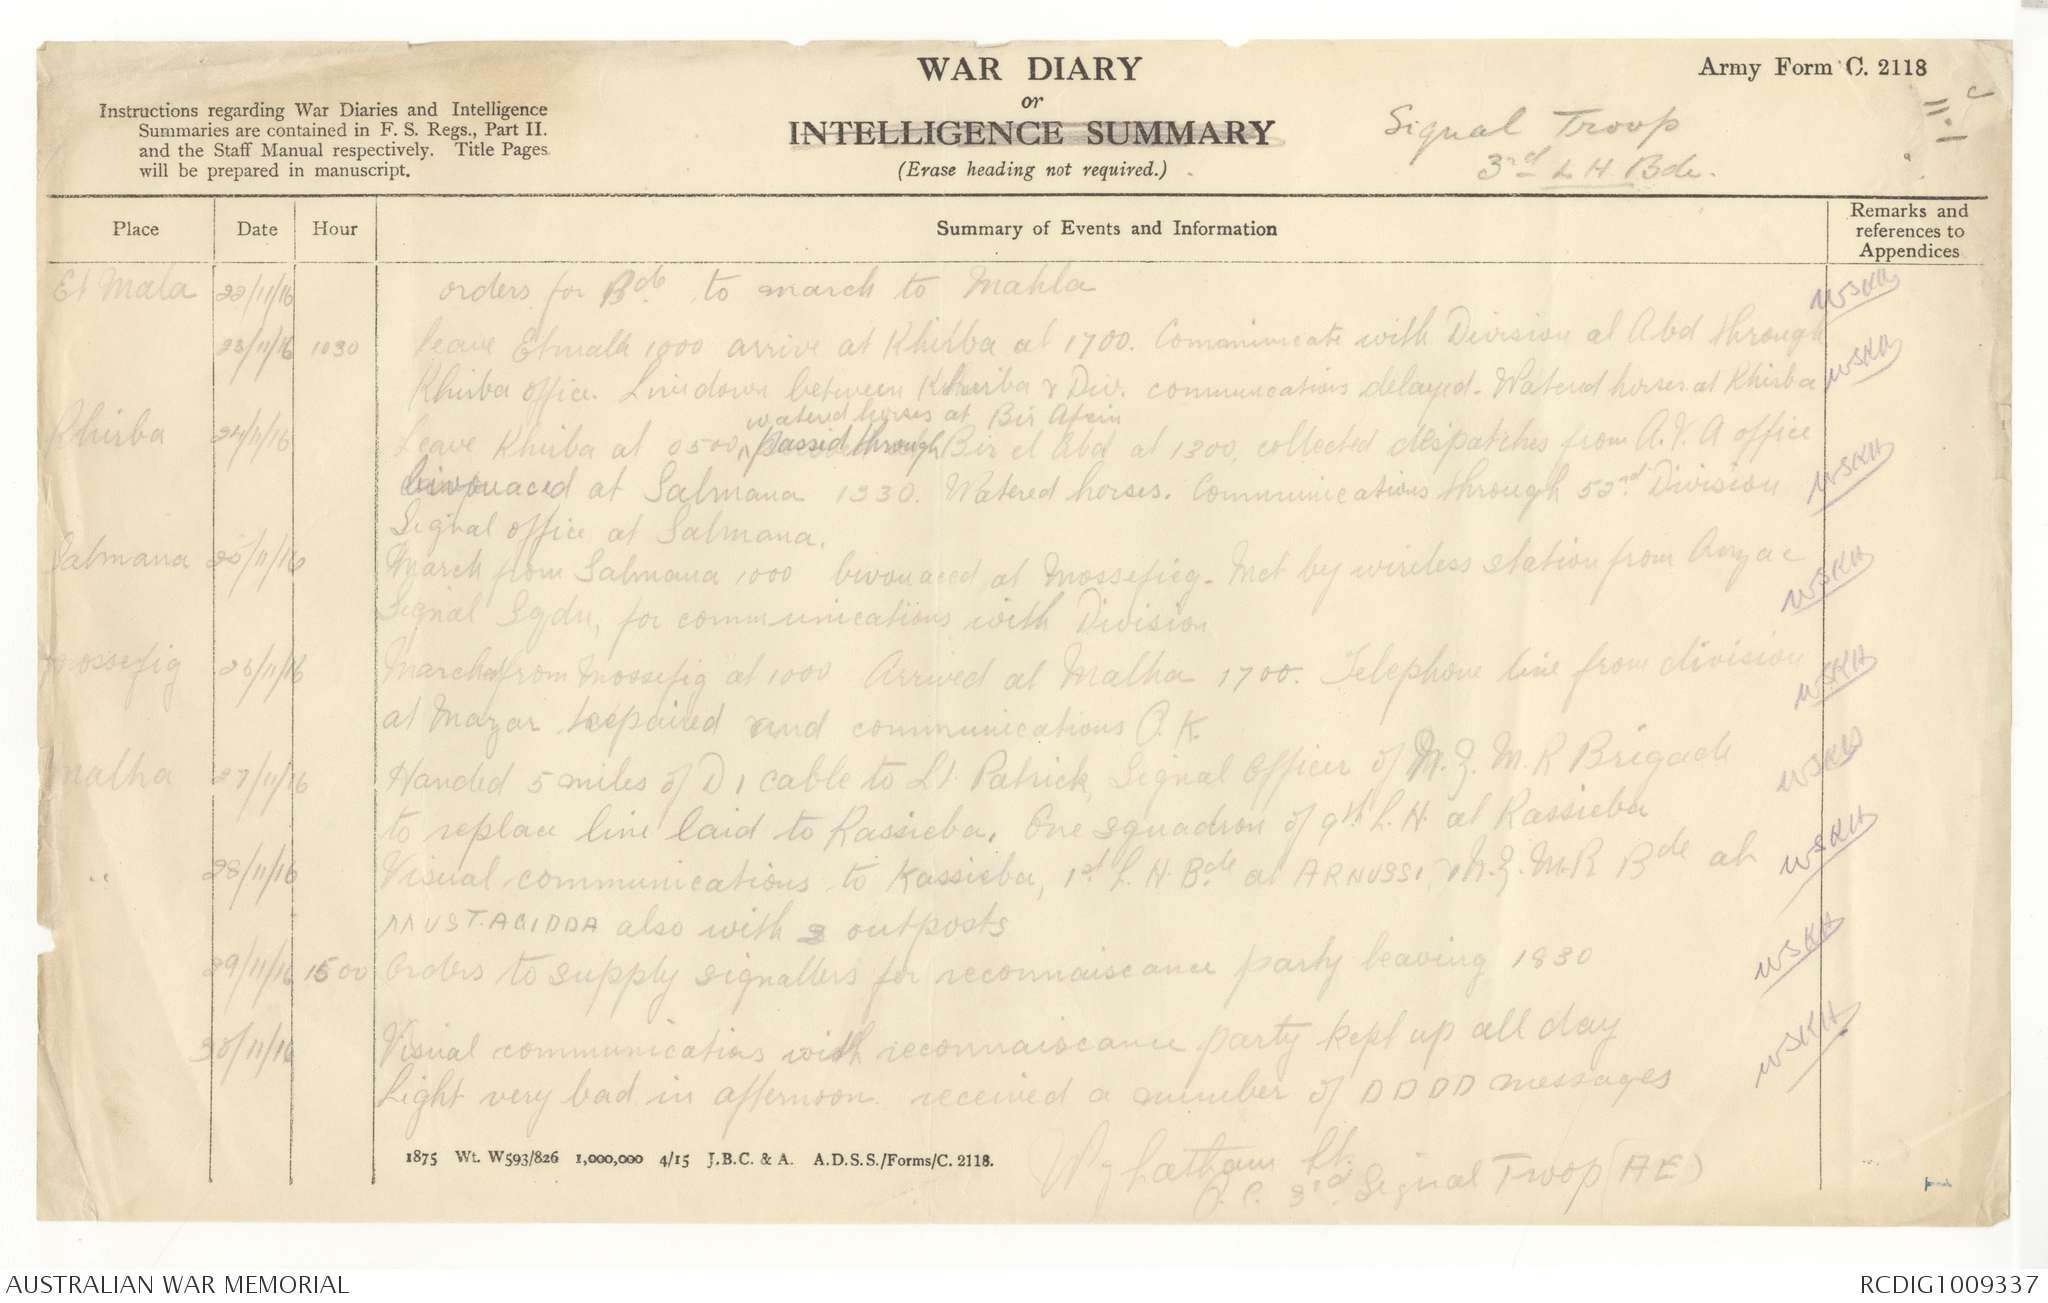 WAR DIARY
or
INTELLIGENCE SUMMARY
(Erase heading not required.)
Army Form C. 2118
Instructions regarding War Diaries and Intelligence
Summaries are contained in F. S. Regs., Part II.
and the Staff Manual respectively. Title Pages
will be prepared in manuscript.
Signal Troop
3rd L H Bde.
Place Date Hour Summary of Events and Information Remarks and references to Appendices
Et Mala 22/11/16 orders for Bde to march to Mahla WSKH
23/11/16 1030 Leave Etmala 1000 arrive at Khirba at 1700. Communicate with Division at Abd through
Khirba office. Line down between Khirba & Div. communications delayed. Watered horses at Khirba WSKH
watered horses at Bir
Khirba 24/11/16 Leave Khirba at 0500, passed through Bir el Abd at 1300, collected despatches from A.V.A office
bivouaced at Salmana 1330. Watered horses. Communications through 52nd Division WSKH
Signal office at Salmana.
Salmana 25/11/16 March from Salmana 1000 bivouaced at Mossefieg. Met by wireless station from Anzac
Signal Sqdn, for communications with Division WSKH
Mossefig 26/11/16 Marched from Mossefig at 1000 Arrived at Malha 1700. Telephone line from division
at Mazar repaired and communications O.K. WSKH
Malha 27/11/16 Handed 5 miles of D1 cable to Lt. Patrick, Signal Officer of N.Z.M.R Brigade
to replace line laid to Kassieba. One squadron of 9th L.H. at Kassieba WSKH
" 28/11/16 Visual communications to Kassieba, 1st L.H. Bde at ARNUSSI, N.Z.M.R Bde at
MUSTAGIDDA also with 3 outposts WSKH
29/11/16 1500 Orders to supply signallers for reconnaiscance party leaving 1830 WSKH
30/11/16 Visual communications with reconnaiscance party kept up all day
Light very bad in afternoon. received a number of DDDD messages WSKH
1875 Wt. W593/826 1,000,000 4/15 J.B.C. & A. A.D.S.S./Forms/C. 2118.
Latham Lt.
O.C. 3rd Signal Troop (AE)
AUSTRALIAN WAR MEMORIAL
RCDIG1009337